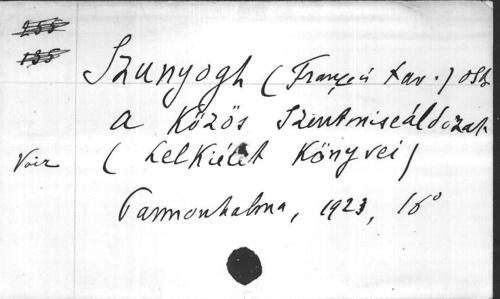 255
155
Szunyogh (François Xav.) OSB
A Közös Szentmiseáldozat
Voir ( Lelkiélet Könyvei)
Pannonhalma, 1923, 16°